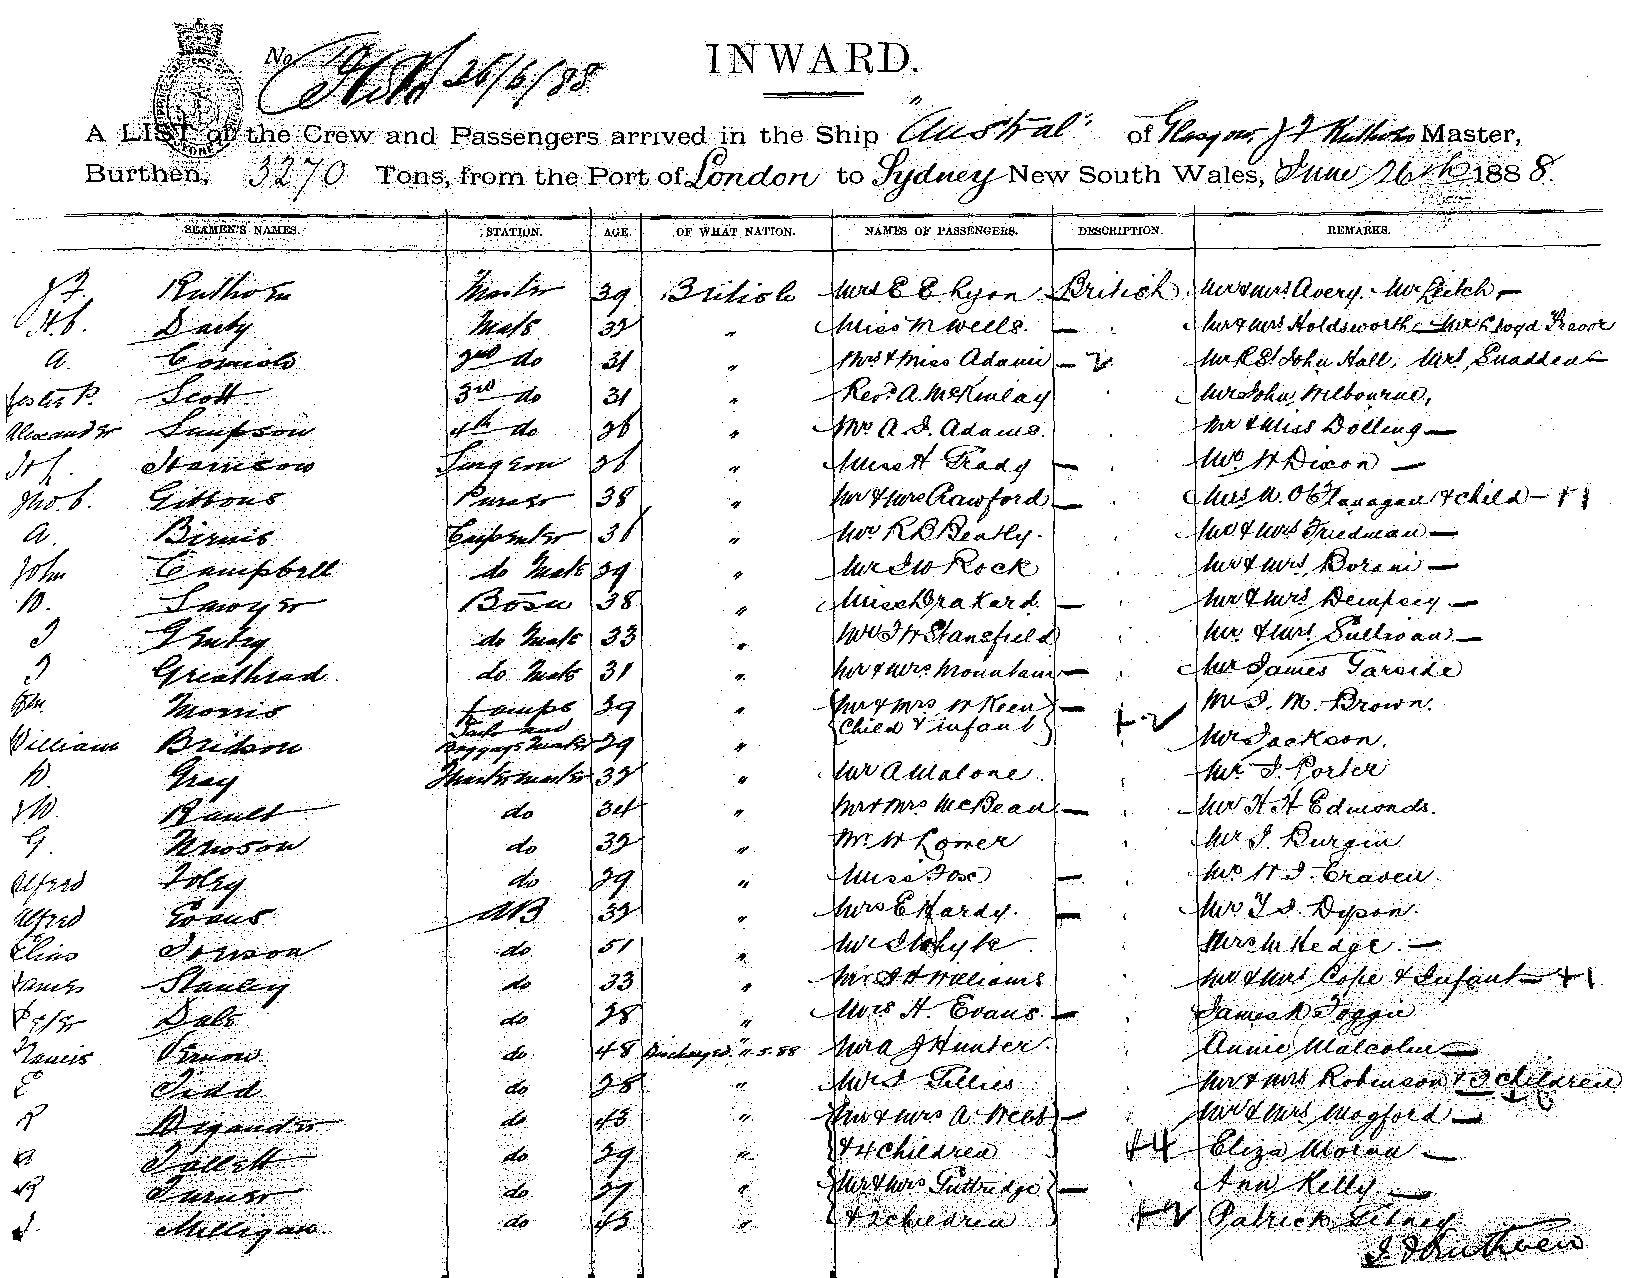 INWARD.
No 26/6/88
A LIST of the Crew and Passengers arrived in the Ship "Austral" of Glasgow, J F Ruthven Master,
Burthen, 3270 Tons, from the Port of London to Sydney New South Wales, June 26th 1888.
SEAMEN'S NAMES. STATION. AGE. OF WHAT NATION. NAMES OF PASSENGERS. DESCRIPTION. REMARKS.
J F Ruthven Master 39 British Mrs E E Lyon British Mr & Mrs Avery. Mr Leitch —
Darby Mate 32 " Miss M Wells. — Mr & Mrs Holdsworth — Mr Lloyd Trevor
A. 2nd do 31 " Mrs & Miss Adams — 2 Mr R St John Hall, Mrs Snadden —
Scott 3rd do 31 " Revd A. McKinlay Mr John Milbourne,
Alexander Simpson 4th do 26 " Mr A. J. Adams. Mr & Miss Dolling —
Surgeon 26 " Miss H Grady — Mr H Dixon —
Jno. C. Gibbons Purser 38 " Mr & Mrs Crawford — Mrs M. O'Flanagan & child — +1
A. Birnie Carpenter 36 " Mr R B Beatly. Mr & Mrs Friedman —
John Campbell do Mate 29 " Mr J W Rock Mr & Mrs —
W. Sawyer Bosn 38 " Miss — Mr & Mrs Dempsey —
J do Mate 33 " Mr J W Stansfield Mr & Mrs Sullivan —
J Greathead do Mate 31 " Mr & Mrs Mountain — Mr James Garside
Wm. Morris Lamps 29 " Mr & Mrs W Keen — Mr J. M. Brown.
William Bridson Baggage Master 29 " Child & infant +2 Mr Jackson.
W Gray Quartermaster 32 " Mr A Malone Mr J. Porter
Rault do 34 " Mr & Mrs McBean — Mr H H Edmonds.
G. Newson do 32 " Mr W Lower Mr J. Burgin
Alfred Foley do 29 " Miss Fox — Mr H J. Craven
Alfred Evans AB 32 " Mrs E Hardy. — Mr T J. Dyson.
Elias do 51 " Mr J Whyte Mrs M Hedge —
James Stanley do 33 " Mr J H Williams Mr & Mrs Cope & Infant — +1
Dale do 28 " Mrs H. Evans — James K Foggie
Francis Vernon do 48 Discharged 11.5.88 Mr A J Hunter. Annie Malcolm —
E Tidd do 28 " Mr J Gillies Mr & Mrs Robinson & 2 children
R do 43 " Mr & Mrs A. Webb — Mr & Mrs Mogford —
do 29 " & 4 children +4 Eliza Moran —
R Turner do 27 " Mr & Mrs Guttridge — Ann Kelly —
J. Milligan do 43 " & 2 children +2 Patrick
J F Ruthven